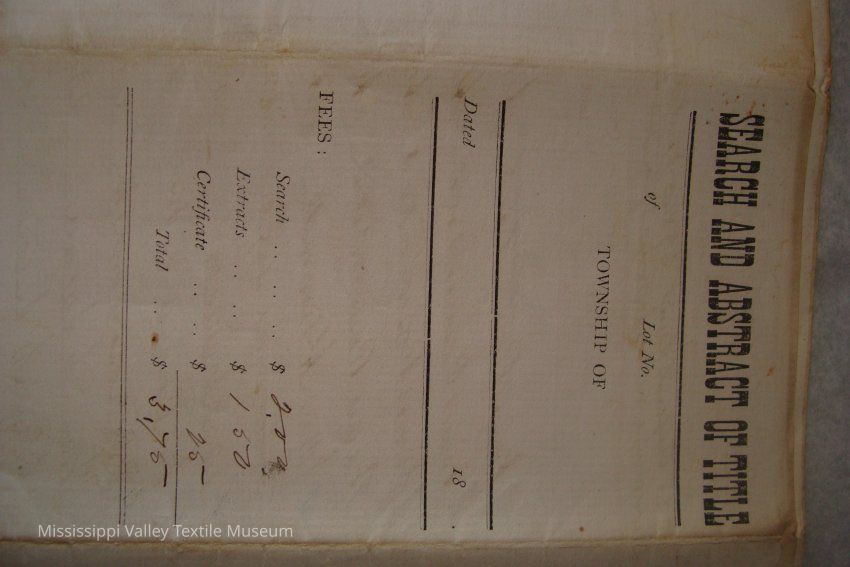 SEARCH AND ABSTRACT OF TITLE
of Lot No.
TOWNSHIP OF
Dated 18 .
FEES :
Search .. .. .. $ 2.00
Extracts .. .. $ 1 50
Certificate .. .. $ 25
Total .. .. $ 3,75
Mississippi Valley Textile Museum